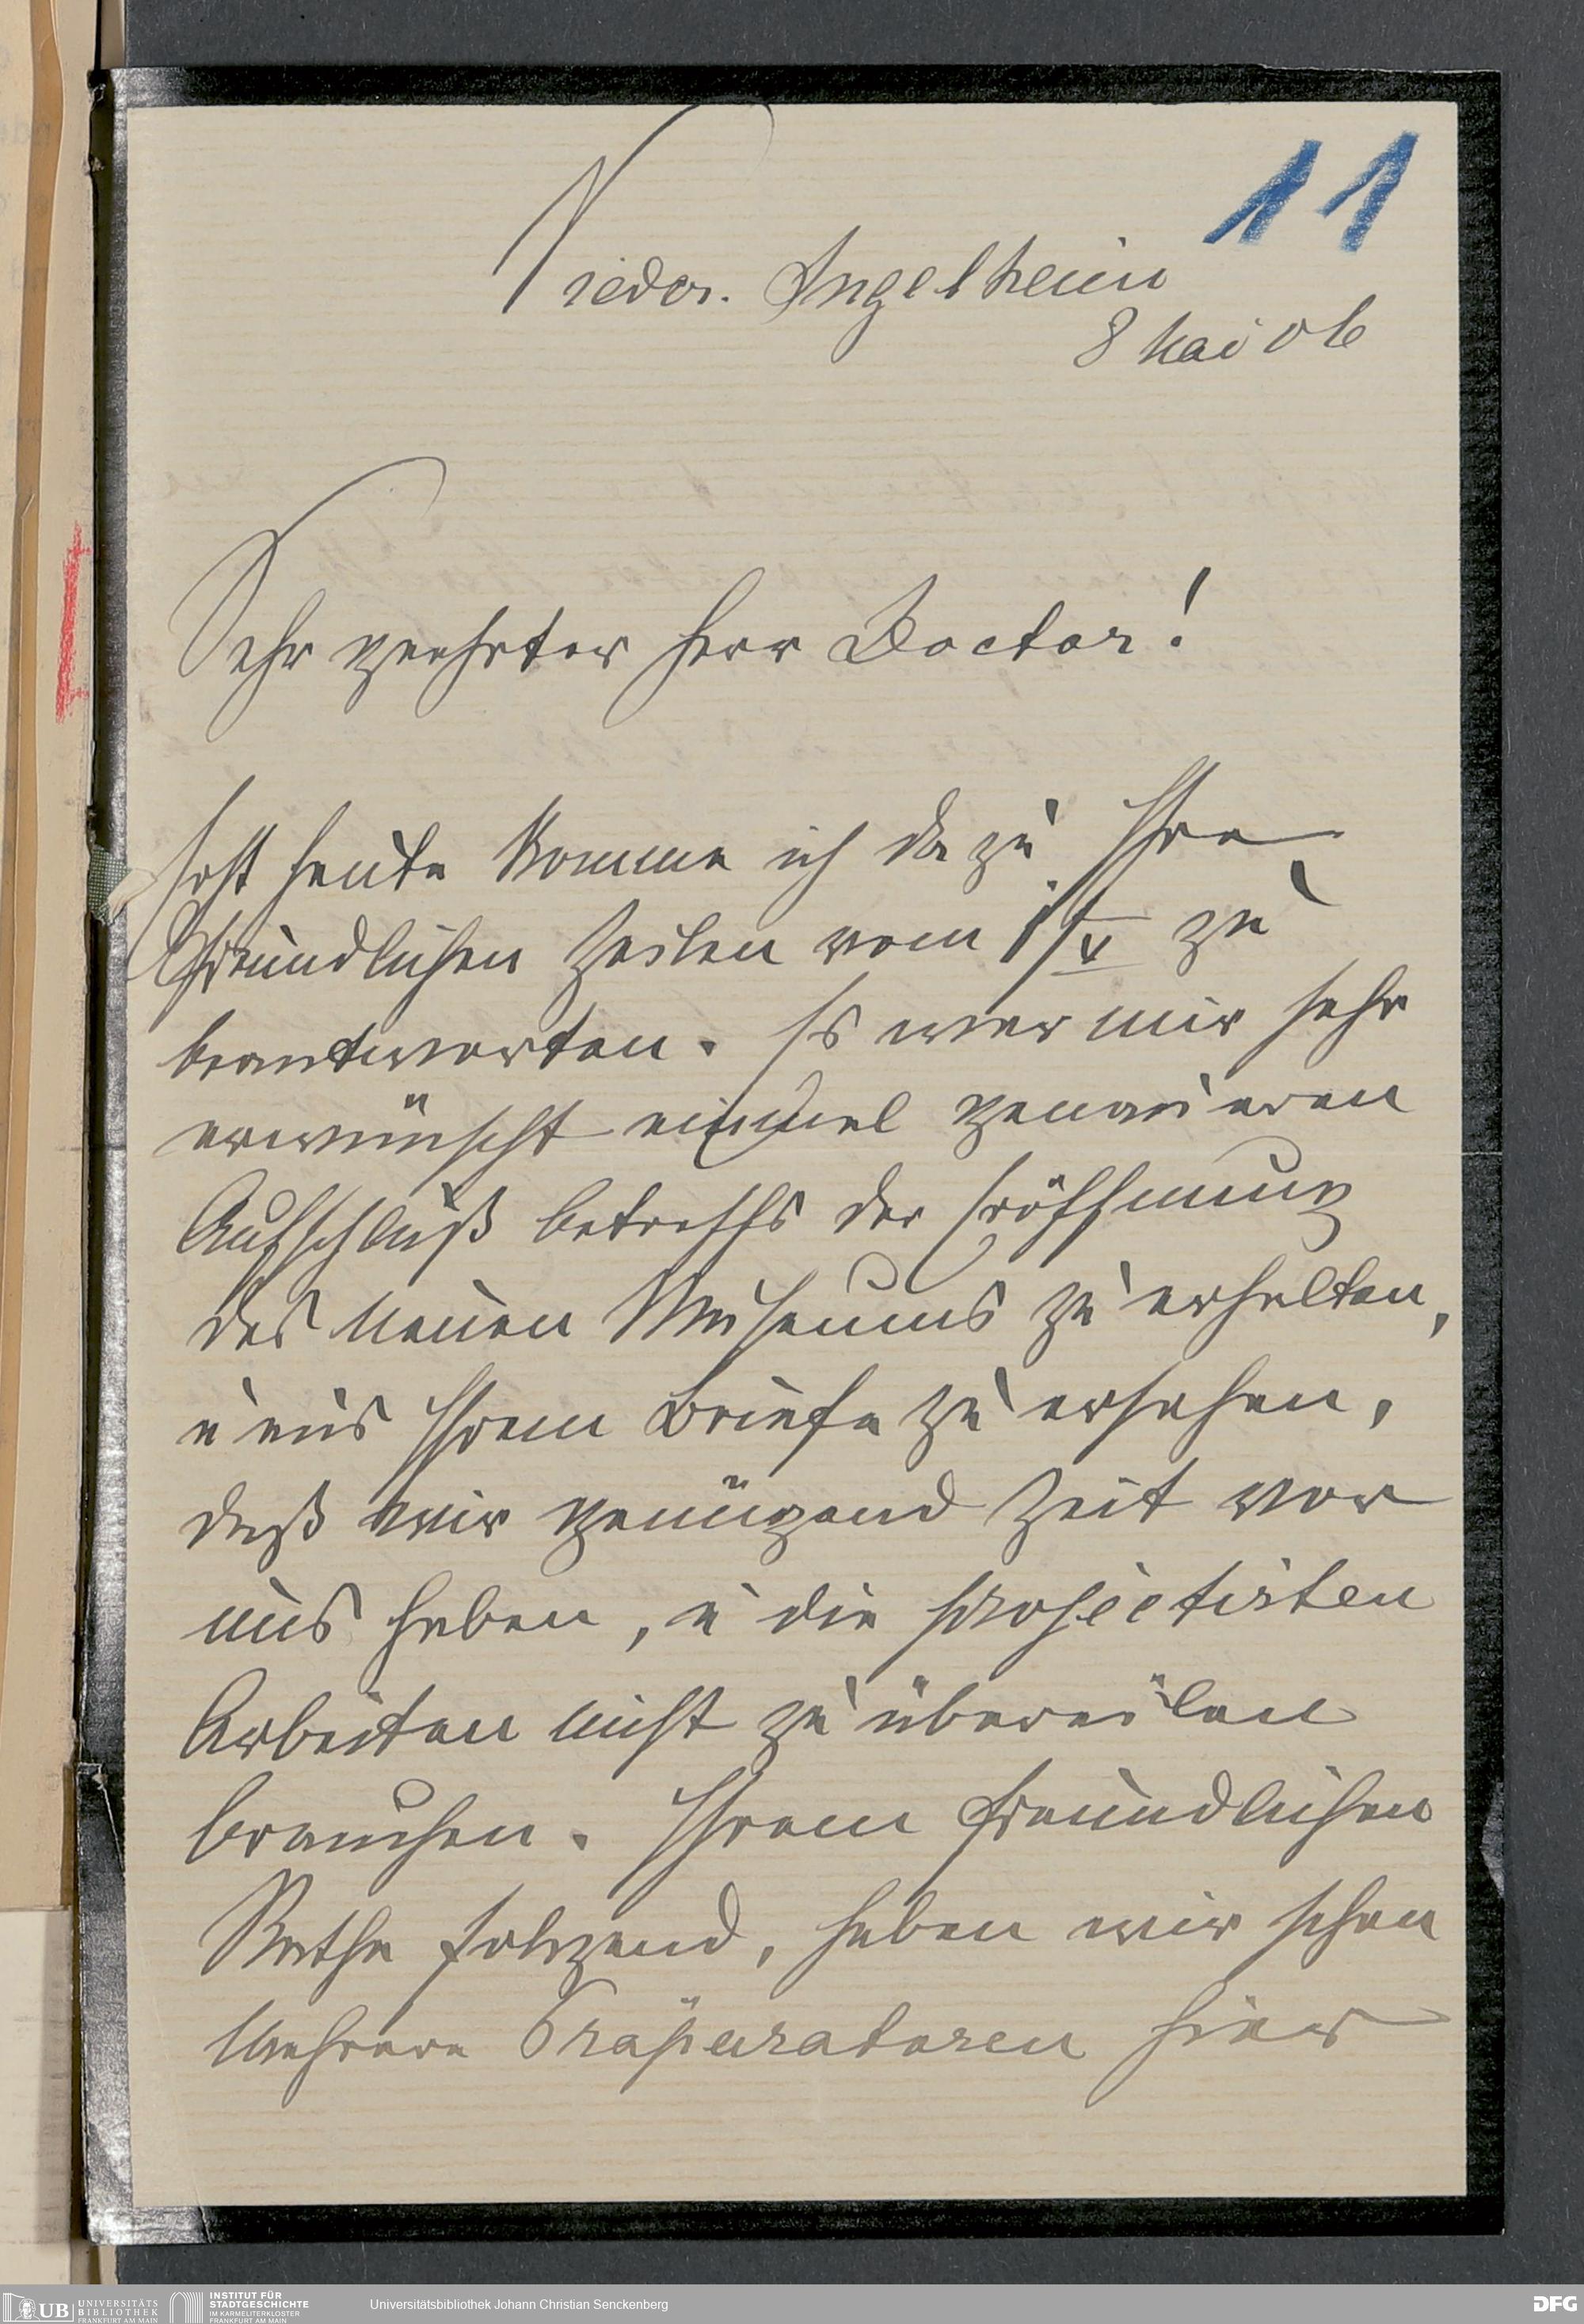 11
Nieder. Ingelheim
8 Mai 06
Sehr geehrter Herr Doctor!
Erst heute komme ich dazu Ihre
Freundlichen Zeilen vom 1/V zu
beantworten. Es war mir sehr
erwünscht einmal genaueren
Aufschluß betreffs der Eröffnung
des neuen Museums zu erhalten,
u aus Ihrem Briefe zu ersehen,
daß wir genügend Zeit vor
uns haben, u die projectirten
Arbeiten nicht zu übereilen
brauchen. Ihrem freundlichen
Rathe folgend, haben wir schon
mehrere Präparatoren hier
UB UNIVERSITÄTS
BIBLIOTHEK
FRANKFURT AM MAIN
INSTITUT FÜR
STADTGESCHICHTE
IM KARMELITERKLOSTER
FRANKFURT AM MAIN
Universitätsbibliothek Johann Christian Senckenberg
DFG